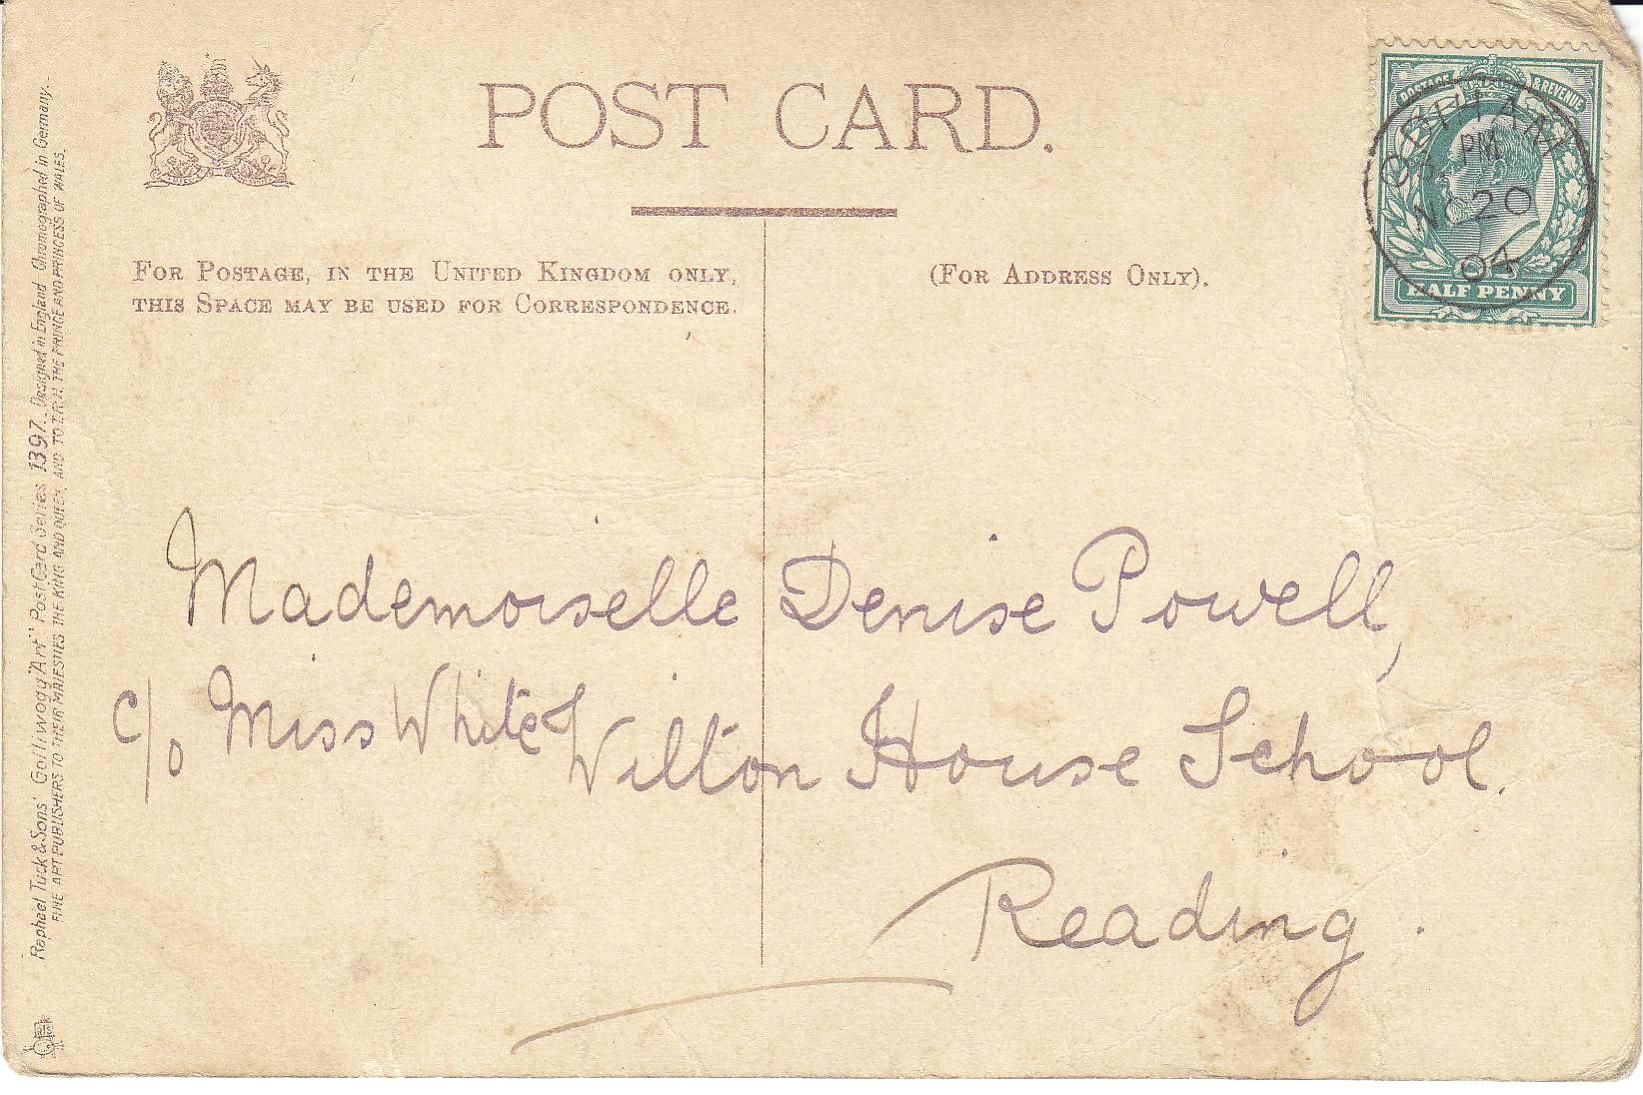 POST CARD.
FOR POSTAGE, IN THE UNITED KINGDOM ONLY,
THIS SPACE MAY BE USED FOR CORRESPONDENCE.
(FOR ADDRESS ONLY).
POSTAGE REVENUE
PM
NO 20
04
HALF PENNY
Mademoiselle Denise Powell,
c/o Miss White Wilton House School.
Reading.
Raphael Tuck & Sons' Golliwogg "Art" Post Card Series 1397. Designed in England Chromographed in Germany.
FINE ART PUBLISHERS TO THEIR MAJESTIES THE KING AND QUEEN, AND TO T.R.H. THE PRINCE AND PRINCESS OF WALES.